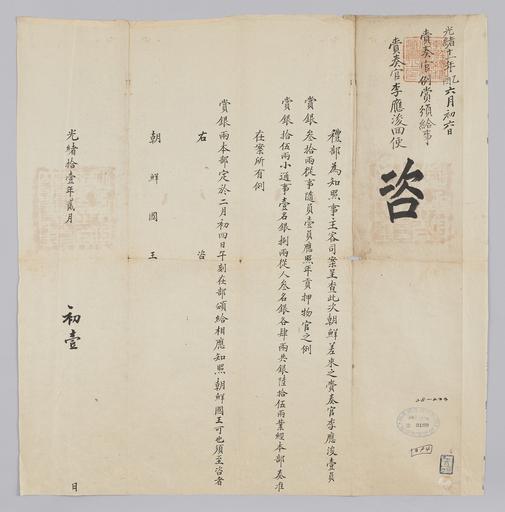 光緒十一年乙酉六月初六日
賫奏官例賞頒給事
賫奏官李應浚回便
咨
禮部為知照事主客司案呈查此次朝鮮差來之賫奏官李應浚壹員
賞銀叁拾兩從事隨員壹員應照年貢押物官之例
賞銀拾伍兩小通事壹名銀捌兩從人叁名銀各肆兩共銀陸拾伍兩業經本部奏准
在案所有例
賞銀兩本部定於二月初四日午刻在部頒給相應知照朝鮮國王可也須至咨者
右咨
朝鮮國王
光緒拾壹年貳月初壹日